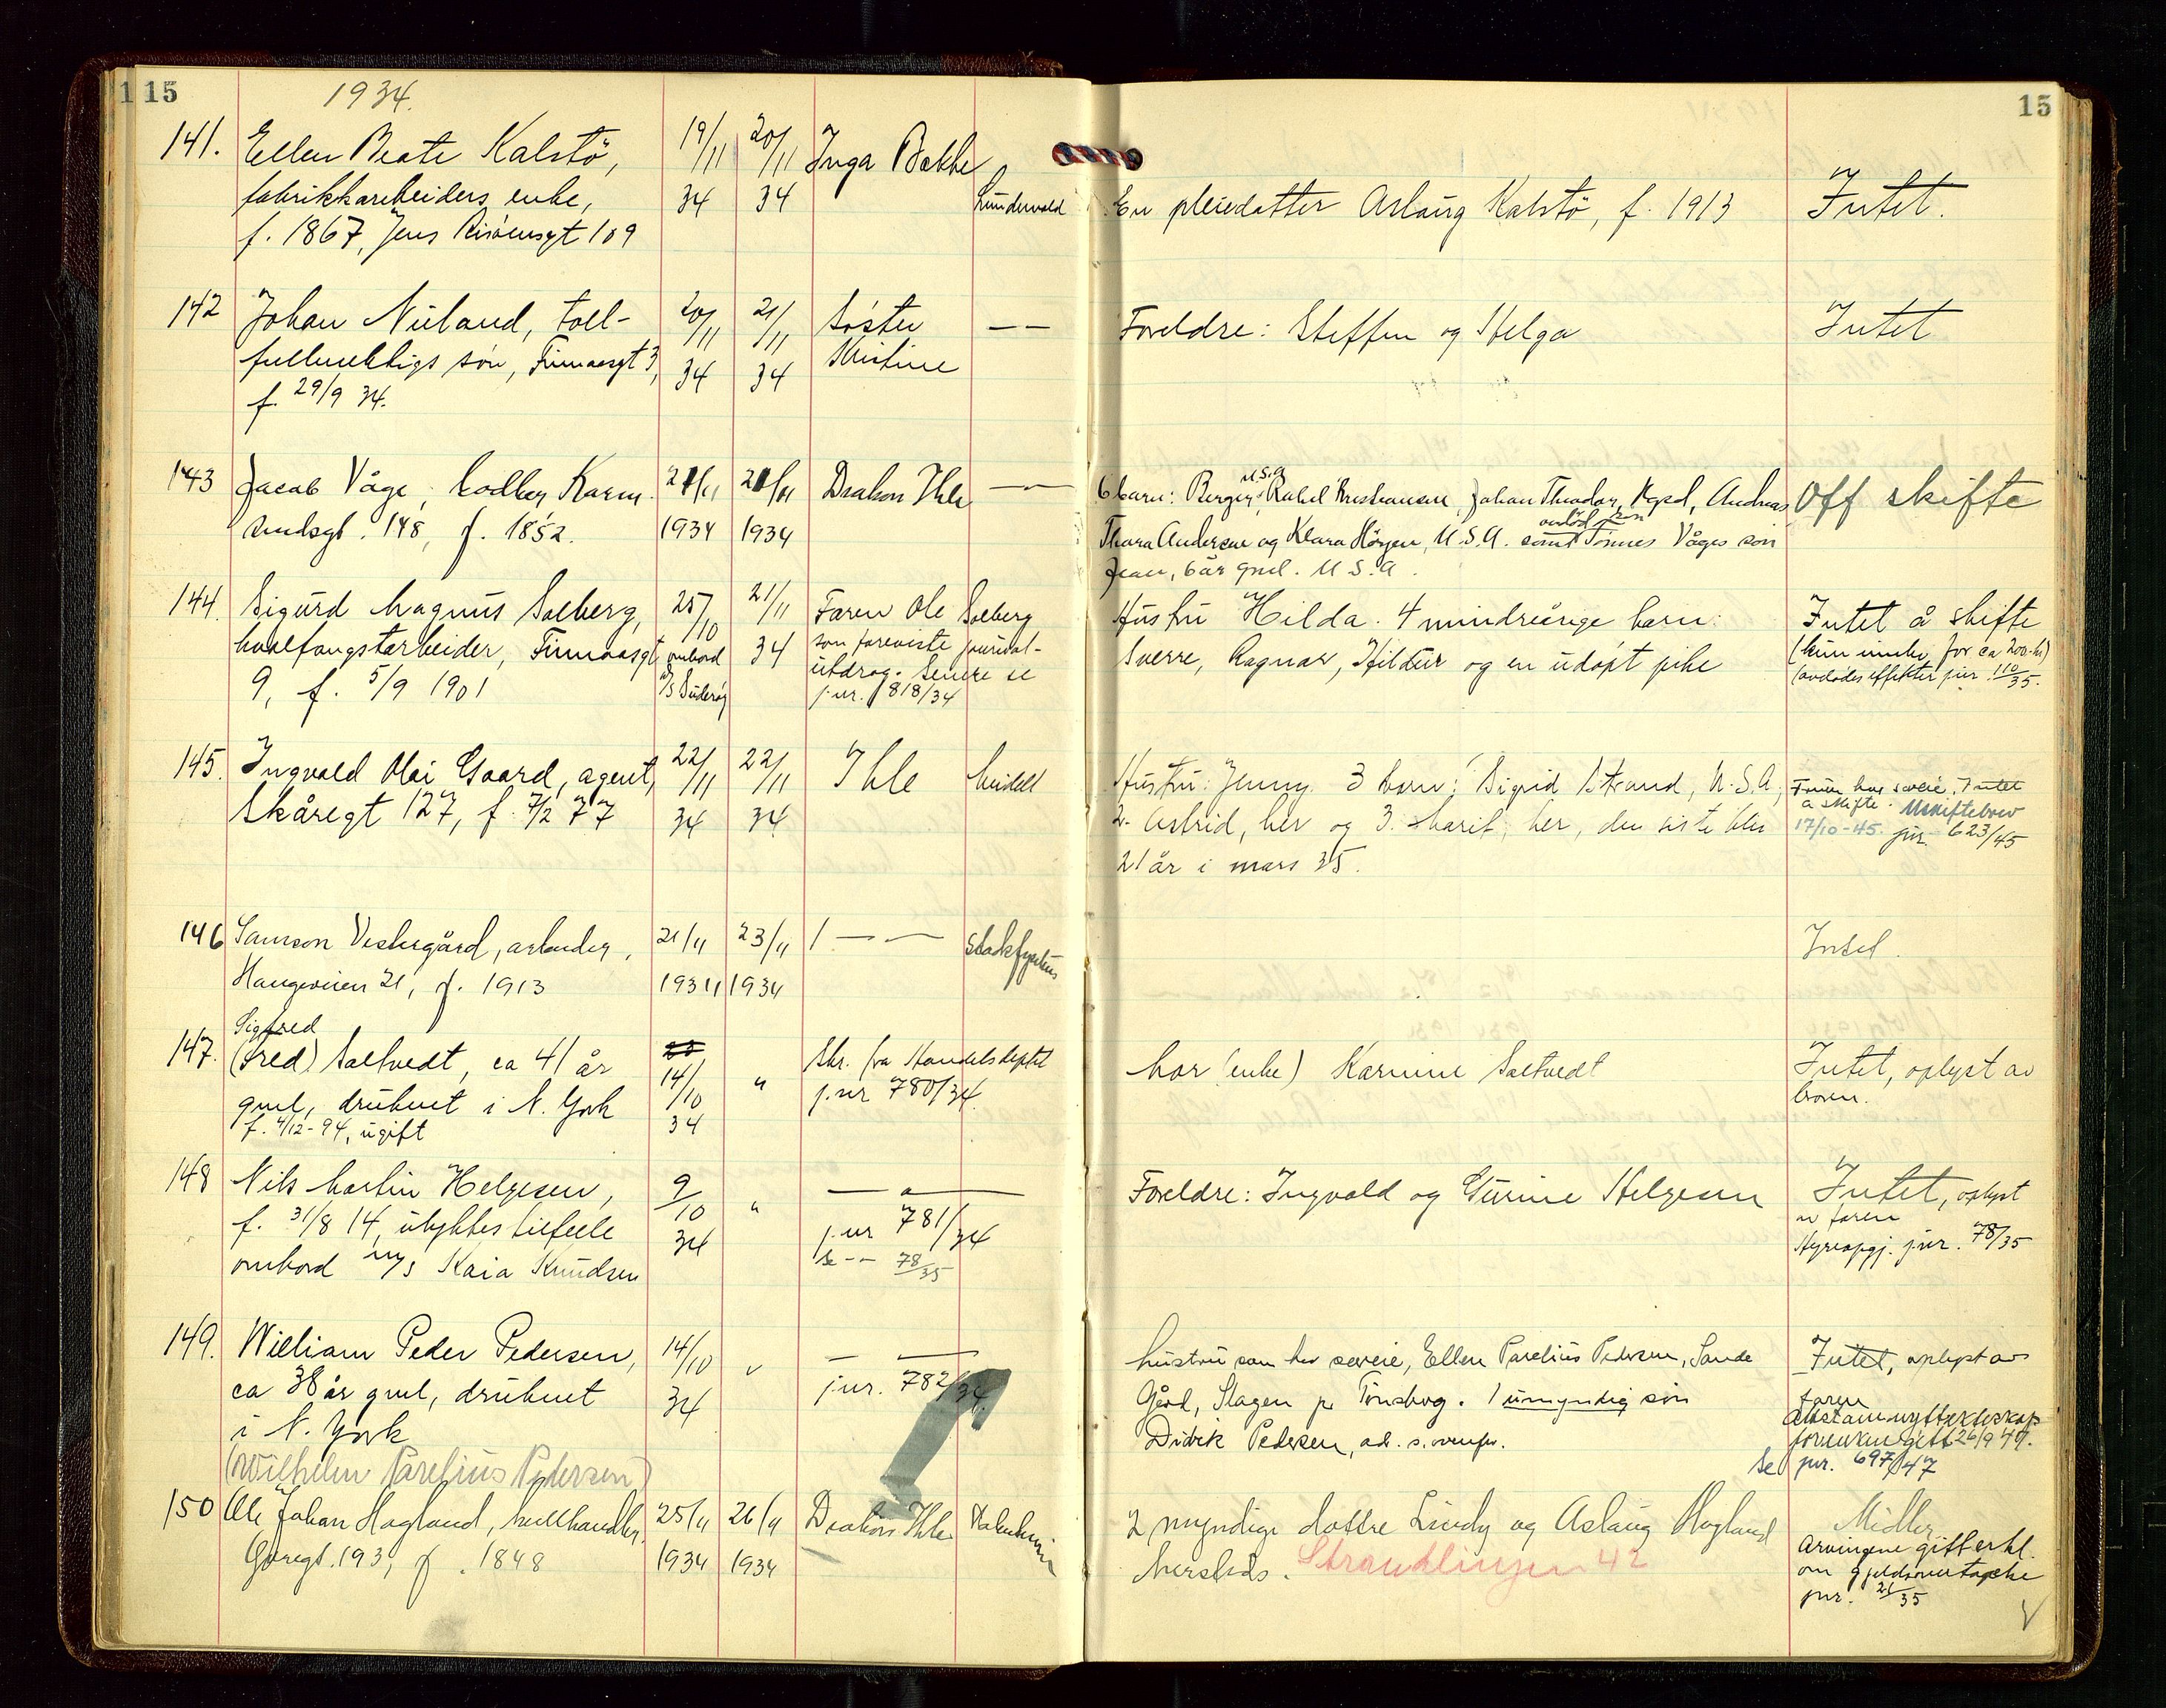 115
15
1934.
141. Ellen Beate Kalstö, 19/11 20/11 Inga Bakke
fabrikkarbeiders enke, 34 34 Lundevold En pleiedatter Aslaug Kalstö, f. 1913 Intet.
f. 1867, Jens Risöensgt 109
142 Johan Niland, toll- 20/11 21/11 Söster — — Foreldre: Steffen og Helga Intet
fullmektigs sön, Finnaasgt 3, 34 34 Kristine
f. 29/9 34.
143 Jacob Våge, Karm 21/11 21/11 Diakon Ihle — — 6 barn: Berger, U.S.A. Rakel Kristiansen, Johan Theodor, Kgsd, Andreas Off skifte
sundsgt. 148, f. 1852. 1934 1934 Thora Andersen og Klara Hörgen, U.S.A. samt avdöd sön Tönnes Våges sön
Jean, 6 år gml. U S.A.
144. Sigurd Magnus Solberg, 25/10 21/11 Faren Ole Solberg Hustru Hilda. 4 mindreårige barn: Intet å skifte
hvalfangstarbeider, Finnaasgt ombord 34 som foreviste journal- Sverre, Ragnar, Hildur og en udöpt pike (kun innbo for ca 200 kr)
9, f. 5/9 1901 M/S Suderöy utdrag. Senere se (avdödes effekter jnr. 110/35.
jnr. 818/34
145. Ingvald Olai Gaard, agent, 22/11 22/11 Ihle Meidell Hustru: Jenny. 3 barn: Sigrid Strand, U.S.A, Fruen har særeie. Intet
Skåregt 127, f. 7/2 77 34 34 2. Astrid, her og 3. Marit, her, den siste blir å skifte. Uskiftebrev
21 år i mars 35. 17/10-45. jnr. 623/45
146 Samson Vestergård, arbeider, 21/11 23/11 — — Stakkfysikus Intet.
Haugeveien 21, f. 1913 1934 1934
Sigfred
147. (Fred) Saltvedt, ca 41 år 14/10 " Skr. fra Handelsdeptet Mor (enke) Karnine Saltvedt Intet, oplyst av
gml, druknet i N. York 34 j.nr 780/34. moren.
f. 4/12-94, ugift
148 Nils Martin Helgesen, 9/10 " — " — Foreldre: Ingvald og Gurine Helgesen Intet, oplyst
f. 31/8 14, ulykkestilfelle 34 j.nr 781/34 av faren
ombord M/S Kaia Knudsen se -- 78/35 Hyreopgj. jnr. 78/35
149. William Peder Pedersen, 14/10 " — — Hustru som har særeie, Ellen Parelius Pedersen, Sande Intet, oplyst av
ca 38 år gml, druknet 34 jnr. 782/34. Gård, Slagen pr Tönsberg. 1 umyndig sön faren
i N. York Didrik Pedersen, adr. s. ovenfor.
(Wilhelm Parelius Pedersen) Se jnr. 697/47
150 Ole Johan Hagland, 25/11 26/11 Diakon Ihle 2 myndige döttre Lindy og Aslaug Hagland Midler
Garegt. 193, f. 1848 1934 1934 steds. Strandlinjen 42 Arvingene gitt erkl.
om gjeldsovertagelse
jnr. 21/35